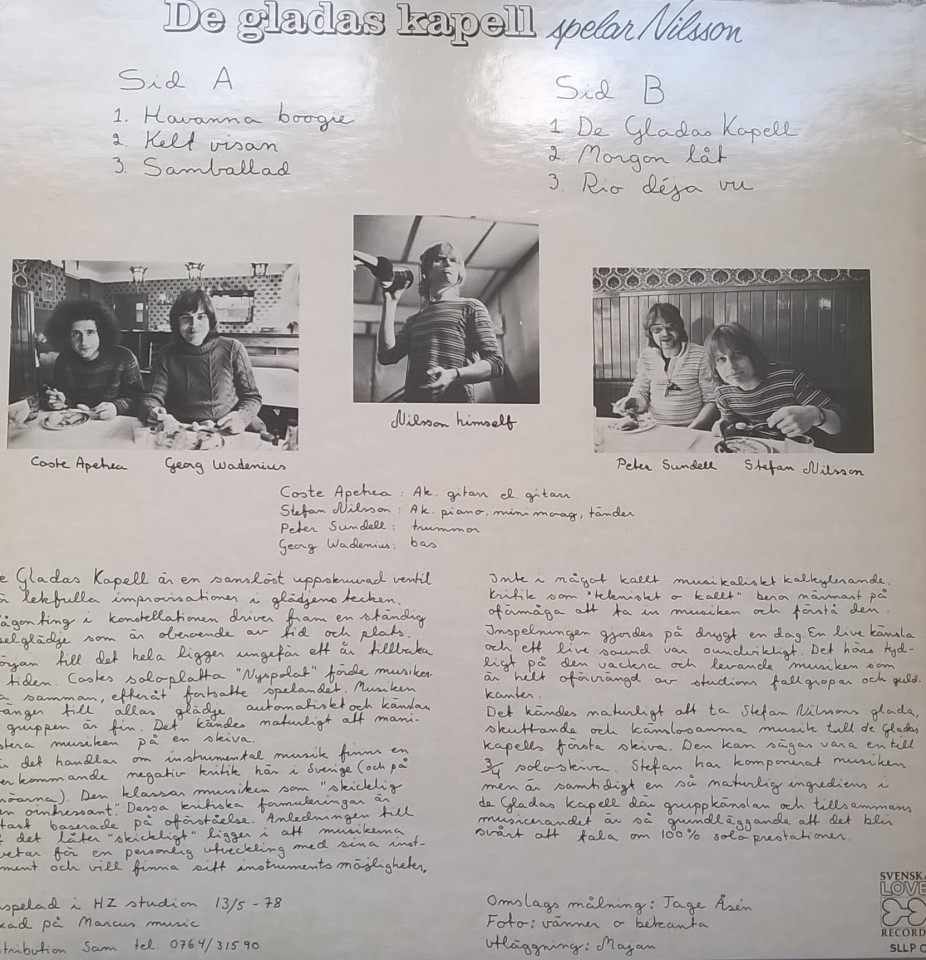 De gladas kapell spelar Nilsson
Sid A
1. Havanna boogie
2. Kelt visan
3. Samballad
Sid B
1 De Gladas Kapell
2. Morgon låt
3. Rio déja vu
Nilsson himself
Coste Apetrea Georg Wadenius
Peter Sundell Stefan Nilsson
Coste Apetrea : Ak. gitarr el. gitarr
Stefan Nilsson : Ak. piano, mini moog, tänder
Peter Sundell : trummor
Georg Wadenius: bas
e Gladas Kapell är en sanslöst uppskruvad ventil
r lekfulla improvisationer i glädjens tecken.
ågonting i konstellationen driver fram en ständig
pelglädje som är oberoende av tid och plats.
örjan till det hela ligger ungefär ett år tillbaka
tiden. Costes soloplatta "Nyspolat" förde musiker-
a samman, efteråt fortsatte spelandet. Musiken
änger till allas glädje automatiskt och känslan
gruppen är fin. Det kändes naturligt att mani-
stera musiken på en skiva.
r det handlar om instrumental-musik finns en
erkommande negativ kritik här i Sverige (och på
öarna). Den klassar musiken som "skicklig
en ointressant." Dessa kritiska formuleringar är
tast baserade på oförståelse. Anledningen till
t det låter "skickligt" ligger i att musikerna
betar för en personlig utveckling med sina inst-
ment och vill finna sitt instruments möjligheter.
Inte i något kallt musikaliskt kalkylerande.
Kritik som "tekniskt o kallt" beror närmast på
oförmåga att ta in musiken och förstå den.
Inspelningen gjordes på drygt en dag. En live känsla
och ett live sound var oundvikligt. Det hörs tyd-
ligt på den vackra och levande musiken som
är helt oförvrängd av studions fallgropar och guld-
kanter.
Det kändes naturligt att ta Stefan Nilssons glada,
skuttande och känslosamma musik till de Gladas
kapells första skiva. Den kan sägas vara en till
3/4 solo-skiva. Stefan har komponerat musiken
men är samtidigt en så naturlig ingrediens i
de Gladas kapell där gruppkänslan och tillsammans
musicerandet är så grundläggande att det blir
svårt att tala om 100% solo prestationer.
nspelad i HZ studion 13/5 - 78
xad på Marcus music
stribution Sam tel: 0764/31590
Omslags målning: Tage Åsén
Foto: vänner o bekanta
Utläggning: Majan
SVENSKA
LOVE
RECORD
SLLP